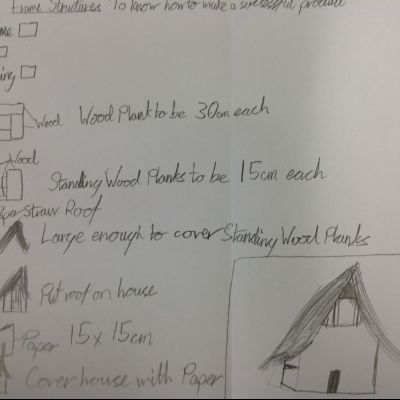 Frame Structures To know how to make a successful product
me
ing
Wood Wood Plank to be 30cm each
Wood
Standing Wood Planks to be 15cm each
per Straw Roof
Large enough to cover Standing Wood Planks
Put roof on house
Paper 15x15cm
Cover house with Paper